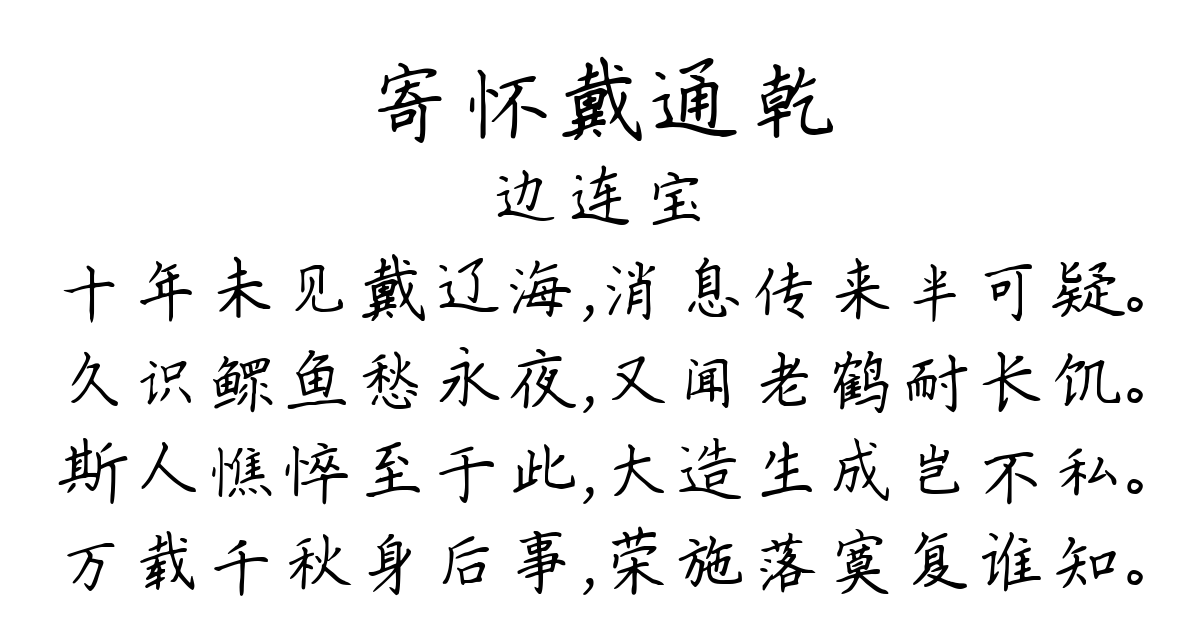 寄怀戴通乾
边连宝
十年未见戴辽海,消息传来半可疑。
久识鳏鱼愁永夜,又闻老鹤耐长饥。
斯人憔悴至于此,大造生成岂不私。
万载千秋身后事,荣施落寞复谁知。